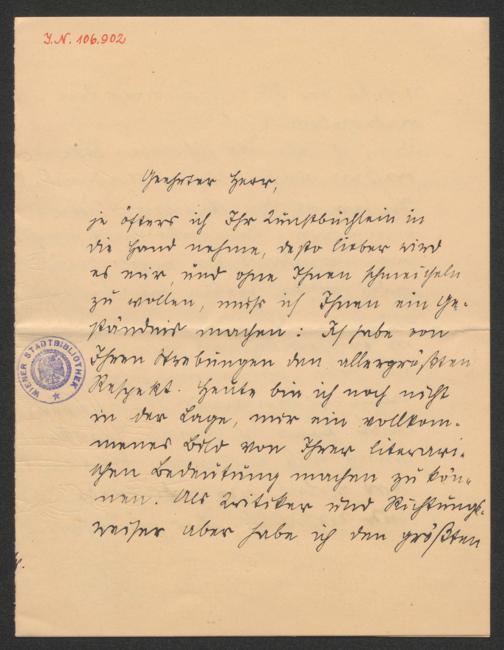 I.N. 106.902
Geehrter Herr,
je öfters ich Ihr Kunstbüchlein in
die Hand nehme, desto lieber wird
es mir, und ohne Ihnen schmeicheln
zu wollen, muss ich Ihnen ein Ge-
ständnis machen: Ich habe von
Ihren Strebungen den allergrößten
Respekt. Heute bin ich noch nicht
in der Lage, mir ein vollkom-
menes Bild von Ihrer literari-
schen Bedeutung machen zu kön-
nen. Als Kritiker und Richtungs-
weiser aber habe ich den größten
WIENER STADTBIBLIOTHEK